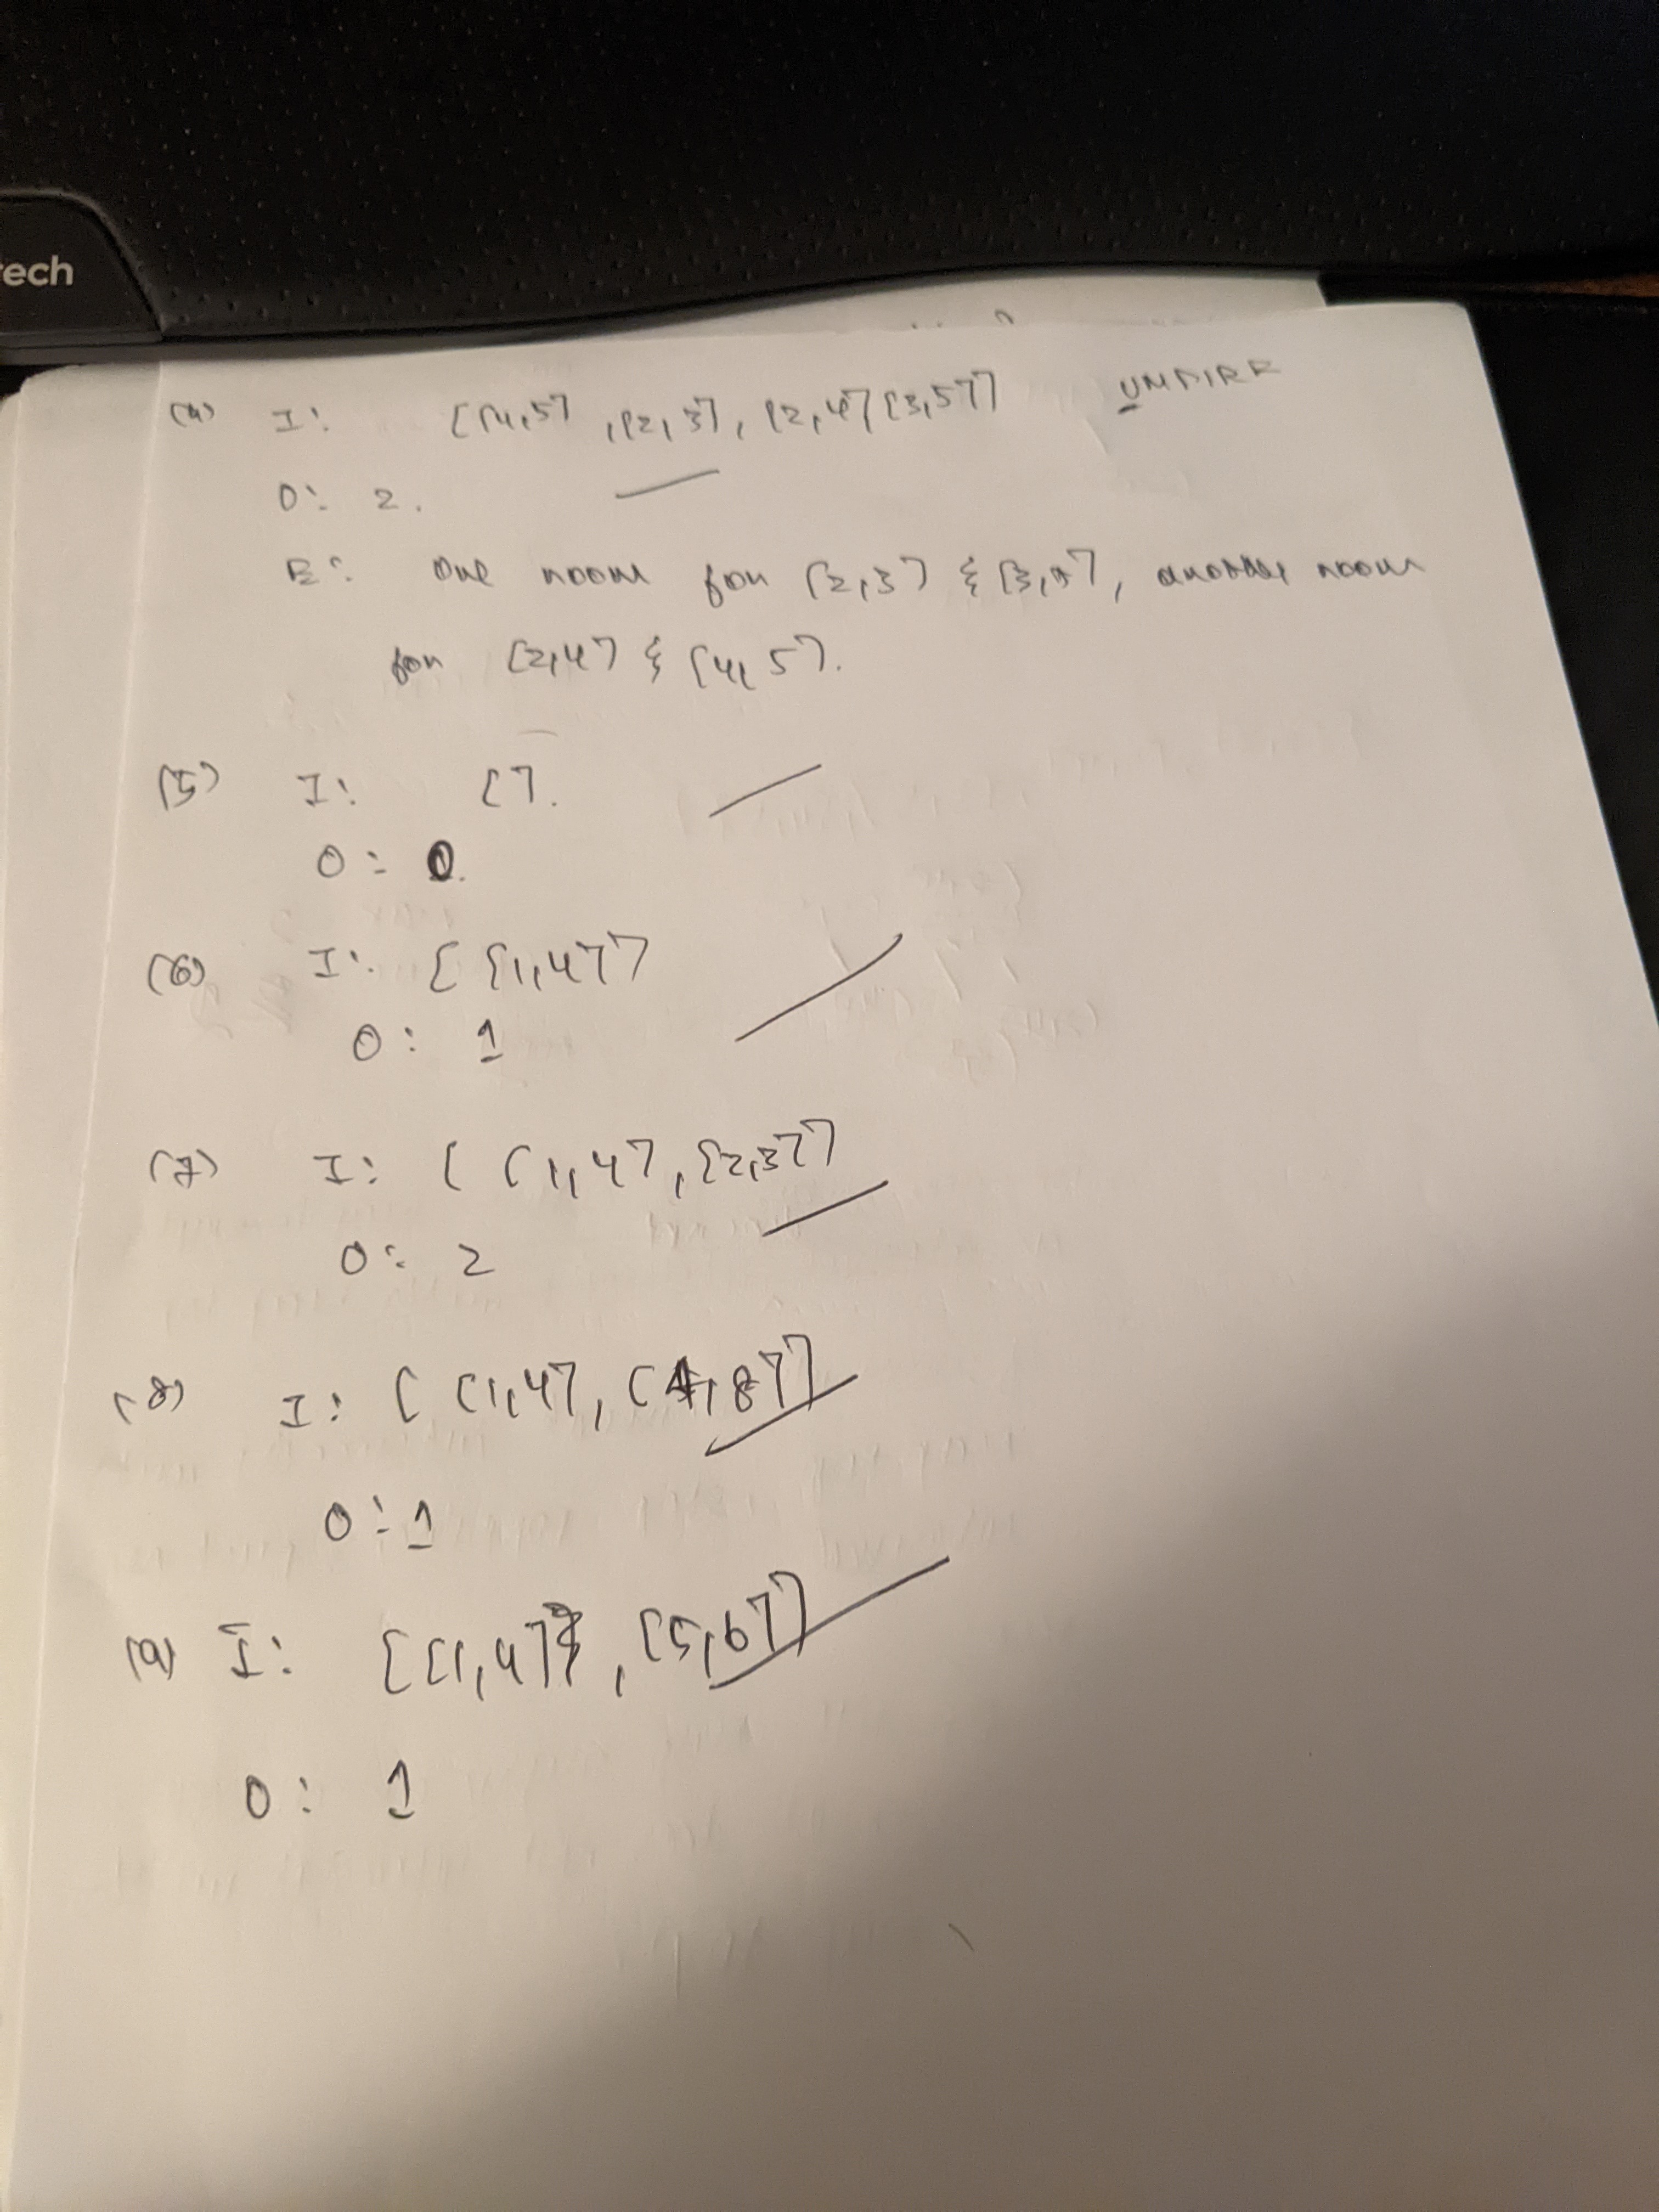 ech
(4) I: [[4,5], [2,3], [2,4] [3,5]] UMPIRE
O: 2.
E: One room for [2,3] & [3,5], another room
for [2,4] & [4,5].
(5) I: [].
O: 0.
(6) I: [[1,4]]
O: 1
(7) I: [[1,4], [2,3]]
O: 2
(8) I: [[1,4], [4,8]]
O: 1
(9) I: [[1,4], [5,6]]
O: 1